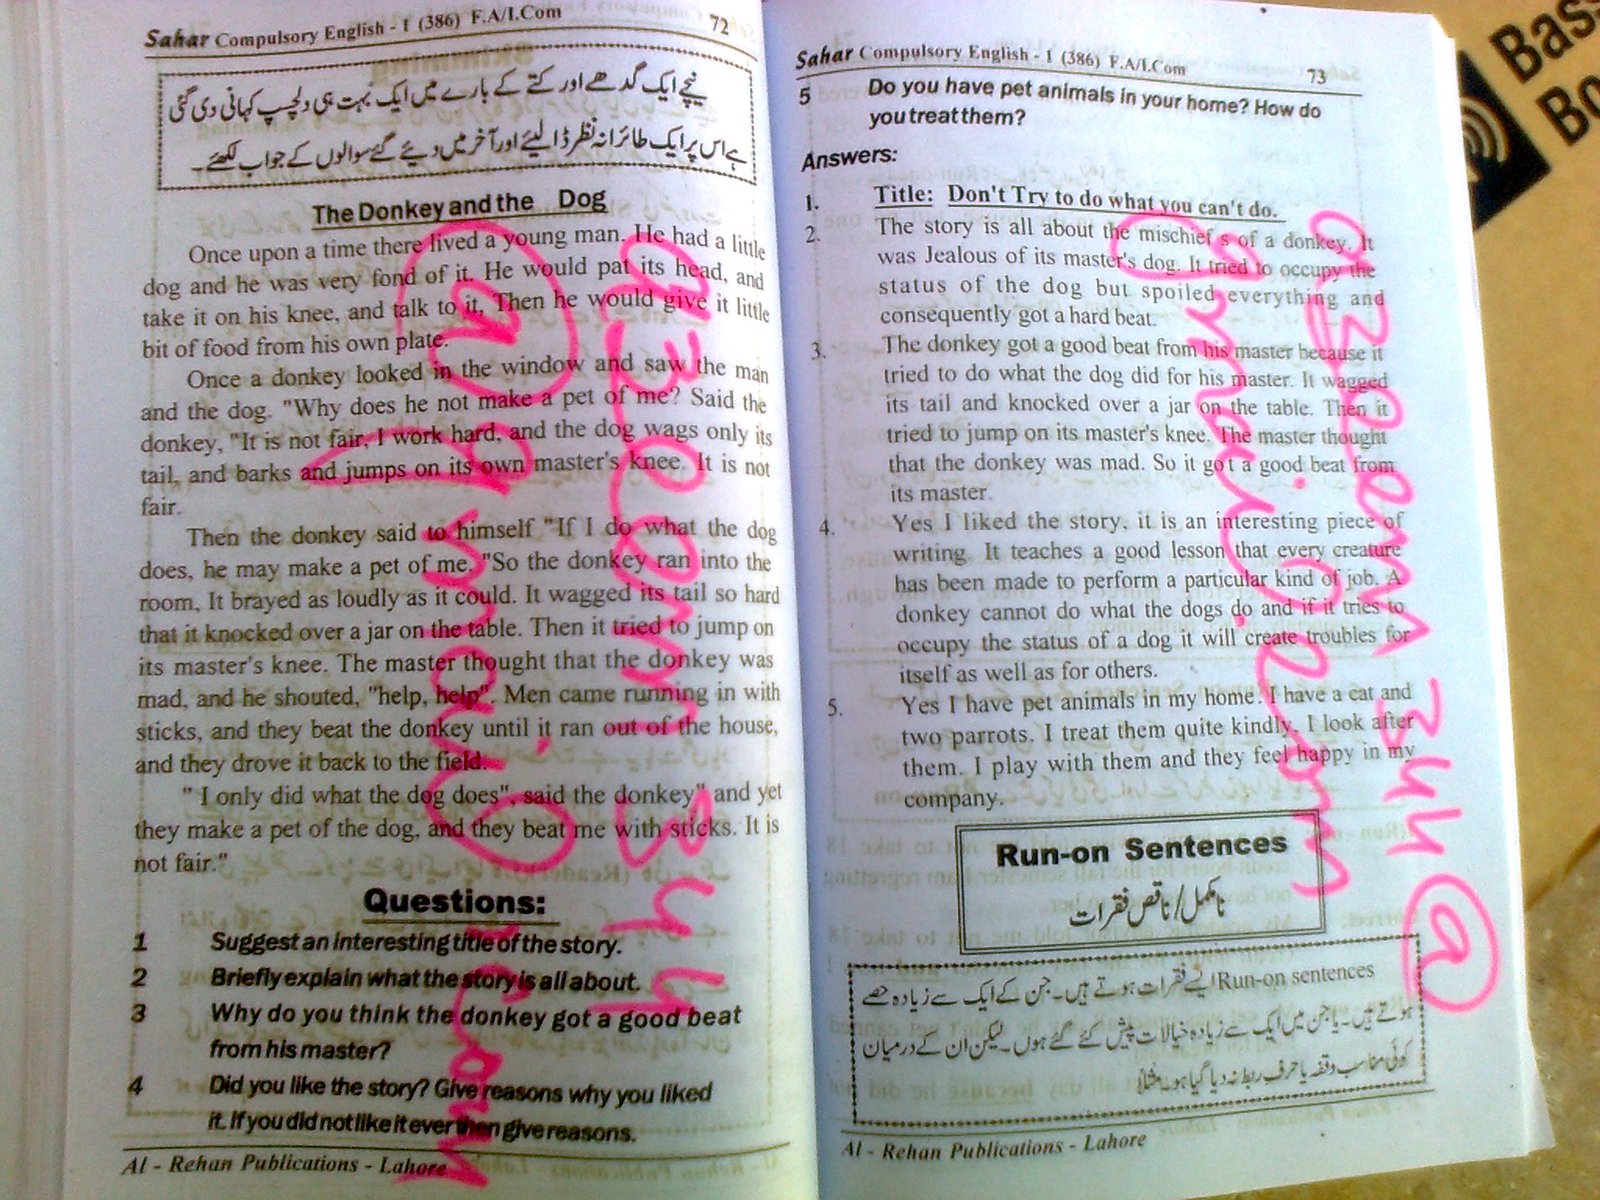 Sahar Compulsory English - 1 (386) F.A/I.Com 72
نیچے ایک گدھے اور کتے کے بارے میں ایک بہت ہی دلچسپ کہانی دی گئی
ہے اس پر ایک طائرانہ نظر ڈالیئے اور آخر میں دیئے گئے سوالوں کے جواب لکھئے۔
The Donkey and the Dog
Once upon a time there lived a young man. He had a little
dog and he was very fond of it. He would pat its head, and
take it on his knee, and talk to it, Then he would give it little
bit of food from his own plate.
Once a donkey looked in the window and saw the man
and the dog. "Why does he not make a pet of me? Said the
donkey, "It is not fair, I work hard, and the dog wags only its
tail, and barks and jumps on its own master's knee. It is not
fair.
Then the donkey said to himself "If I do what the dog
does, he may make a pet of me. "So the donkey ran into the
room, It brayed as loudly as it could. It wagged its tail so hard
that it knocked over a jar on the table. Then it tried to jump on
its master's knee. The master thought that the donkey was
mad, and he shouted, "help, help". Men came running in with
sticks, and they beat the donkey until it ran out of the house,
and they drove it back to the field.
" I only did what the dog does", said the donkey" and yet
they make a pet of the dog, and they beat me with sticks. It is
not fair."
Questions:
1 Suggest an interesting title of the story.
2 Briefly explain what the story is all about.
3 Why do you think the donkey got a good beat
from his master?
4 Did you like the story? Give reasons why you liked
it. If you did not like it ever then give reasons.
Al - Rehan Publications - Lahore
Sahar Compulsory English - 1 (386) F.A/I.Com 73
5 Do you have pet animals in your home? How do
you treat them?
Answers:
1. Title: Don't Try to do what you can't do.
2. The story is all about the mischief s of a donkey. It
was Jealous of its master's dog. It tried to occupy the
status of the dog but spoiled everything and
consequently got a hard beat.
3. The donkey got a good beat from his master because it
tried to do what the dog did for his master. It wagged
its tail and knocked over a jar on the table. Then it
tried to jump on its master's knee. The master thought
that the donkey was mad. So it got a good beat from
its master.
4. Yes I liked the story, it is an interesting piece of
writing. It teaches a good lesson that every creature
has been made to perform a particular kind of job. A
donkey cannot do what the dogs do and if it tries to
occupy the status of a dog it will create troubles for
itself as well as for others.
5. Yes I have pet animals in my home. I have a cat and
two parrots. I treat them quite kindly. I look after
them. I play with them and they feel happy in my
company.
Run-on Sentences
نامکمل/ناقص فقرات
Run-on sentences ایسے فقرات ہوتے ہیں۔ جن کے ایک سے زیادہ حصے
ہوتے ہیں۔ یا جن میں ایک سے زیادہ خیالات پیش کئے گئے ہوں۔ لیکن ان کے درمیان
کوئی مناسب وقفہ یا حرف ربط نہ دیا گیا ہو۔ مثلاً
azeem344
@gmail.com
azeem344@
gmail.com
Bas
Bo